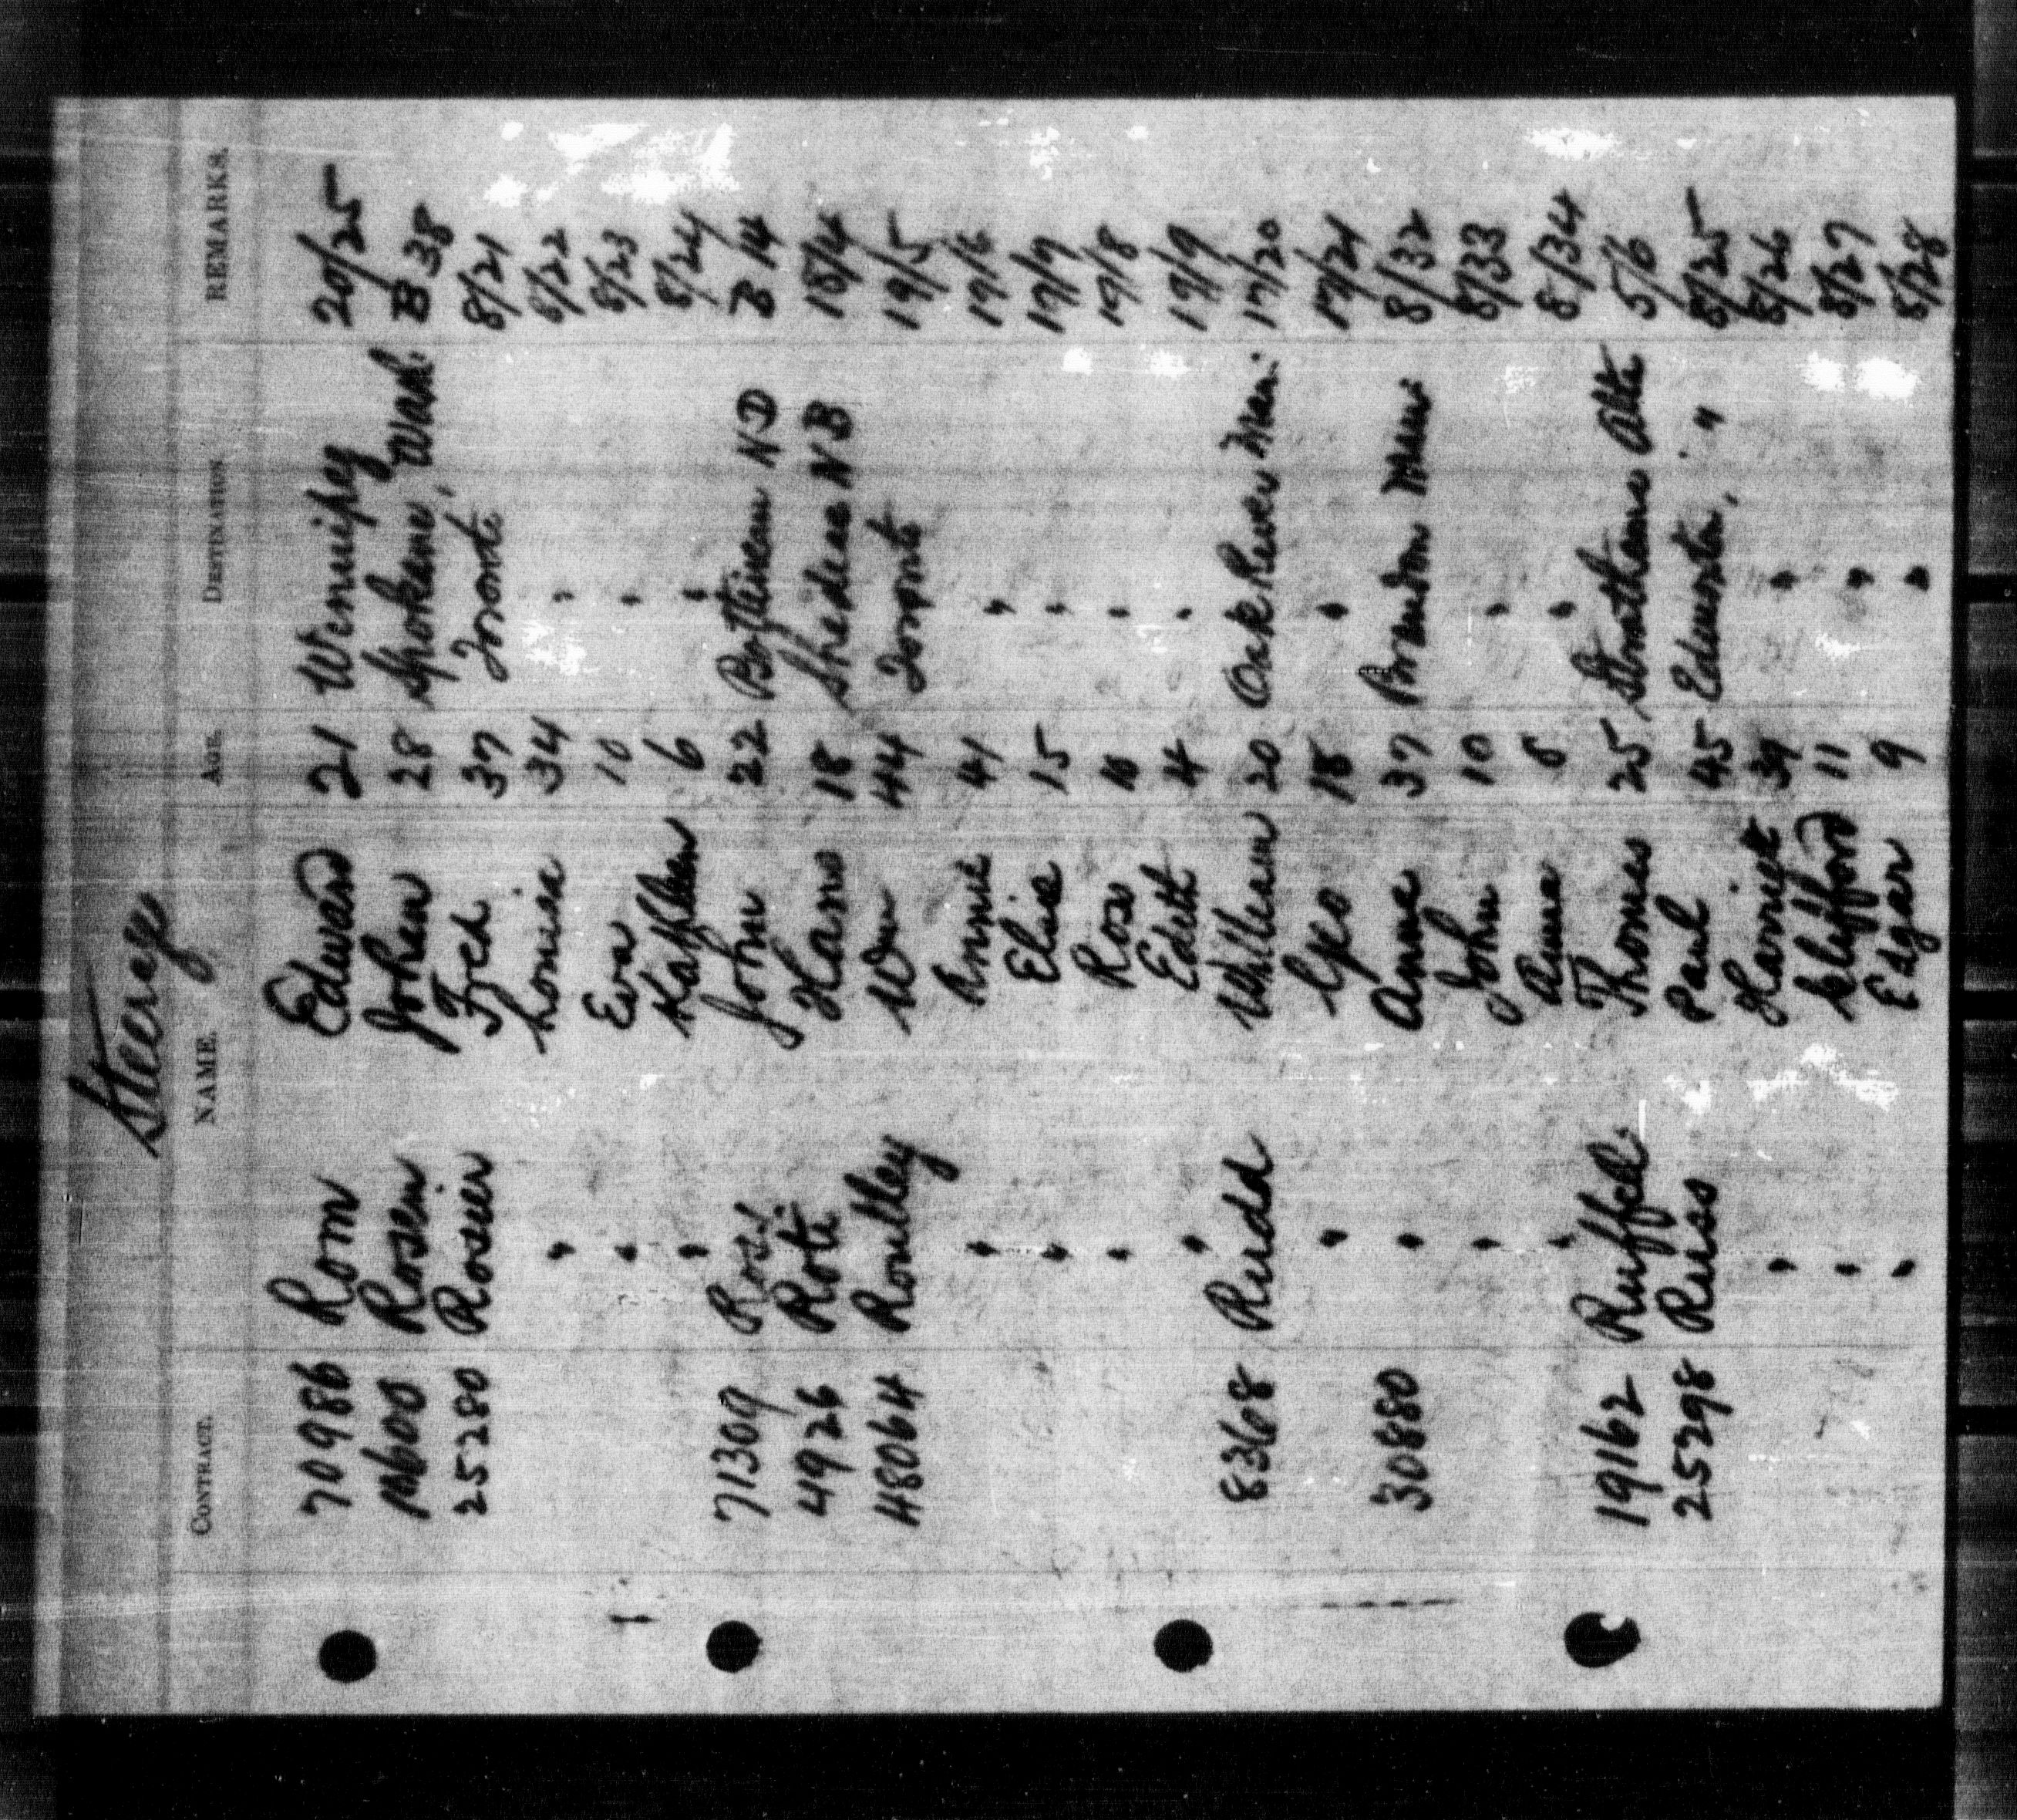 Steerage
CONTRACT. NAME. AGE. DESTINATION REMARKS.
70986 Rom Edward 21 Winnipeg 20/25
Rosen Johan 28 Spokane, Wash. B 38
25280 Rosier Fred 37 Toronto 8/21
" Louisa 34 " 8/22
" Eva 10 " 8/23
" Kathleen 6 " 8/24
71309 Ross John 22 Bottineau ND B 14
4926 Rote Hans 18 Shediac NB 18/4
48064 Roulley Wm 44 Toronto 19/5
" Annie 41 " 19/6
" Elisa 15 " 19/7
" Rose 10 " 19/8
" Edith 4 " 19/9
8368 Rudd William 20 Oak River Man. 17/20
" Geo 18 " 17/21
30880 " Anna 37 Brandon Man 8/32
" John 10 " 8/33
" Anna 5 " 8/34
19162 Ruffell Thomas 25 Strathcona Alta 5/6
25298 Russ Paul 45 Edmonton, " 8/25
" Harriet 39 " 8/26
" Clifford 11 " 8/27
" Edgar 9 " 8/28